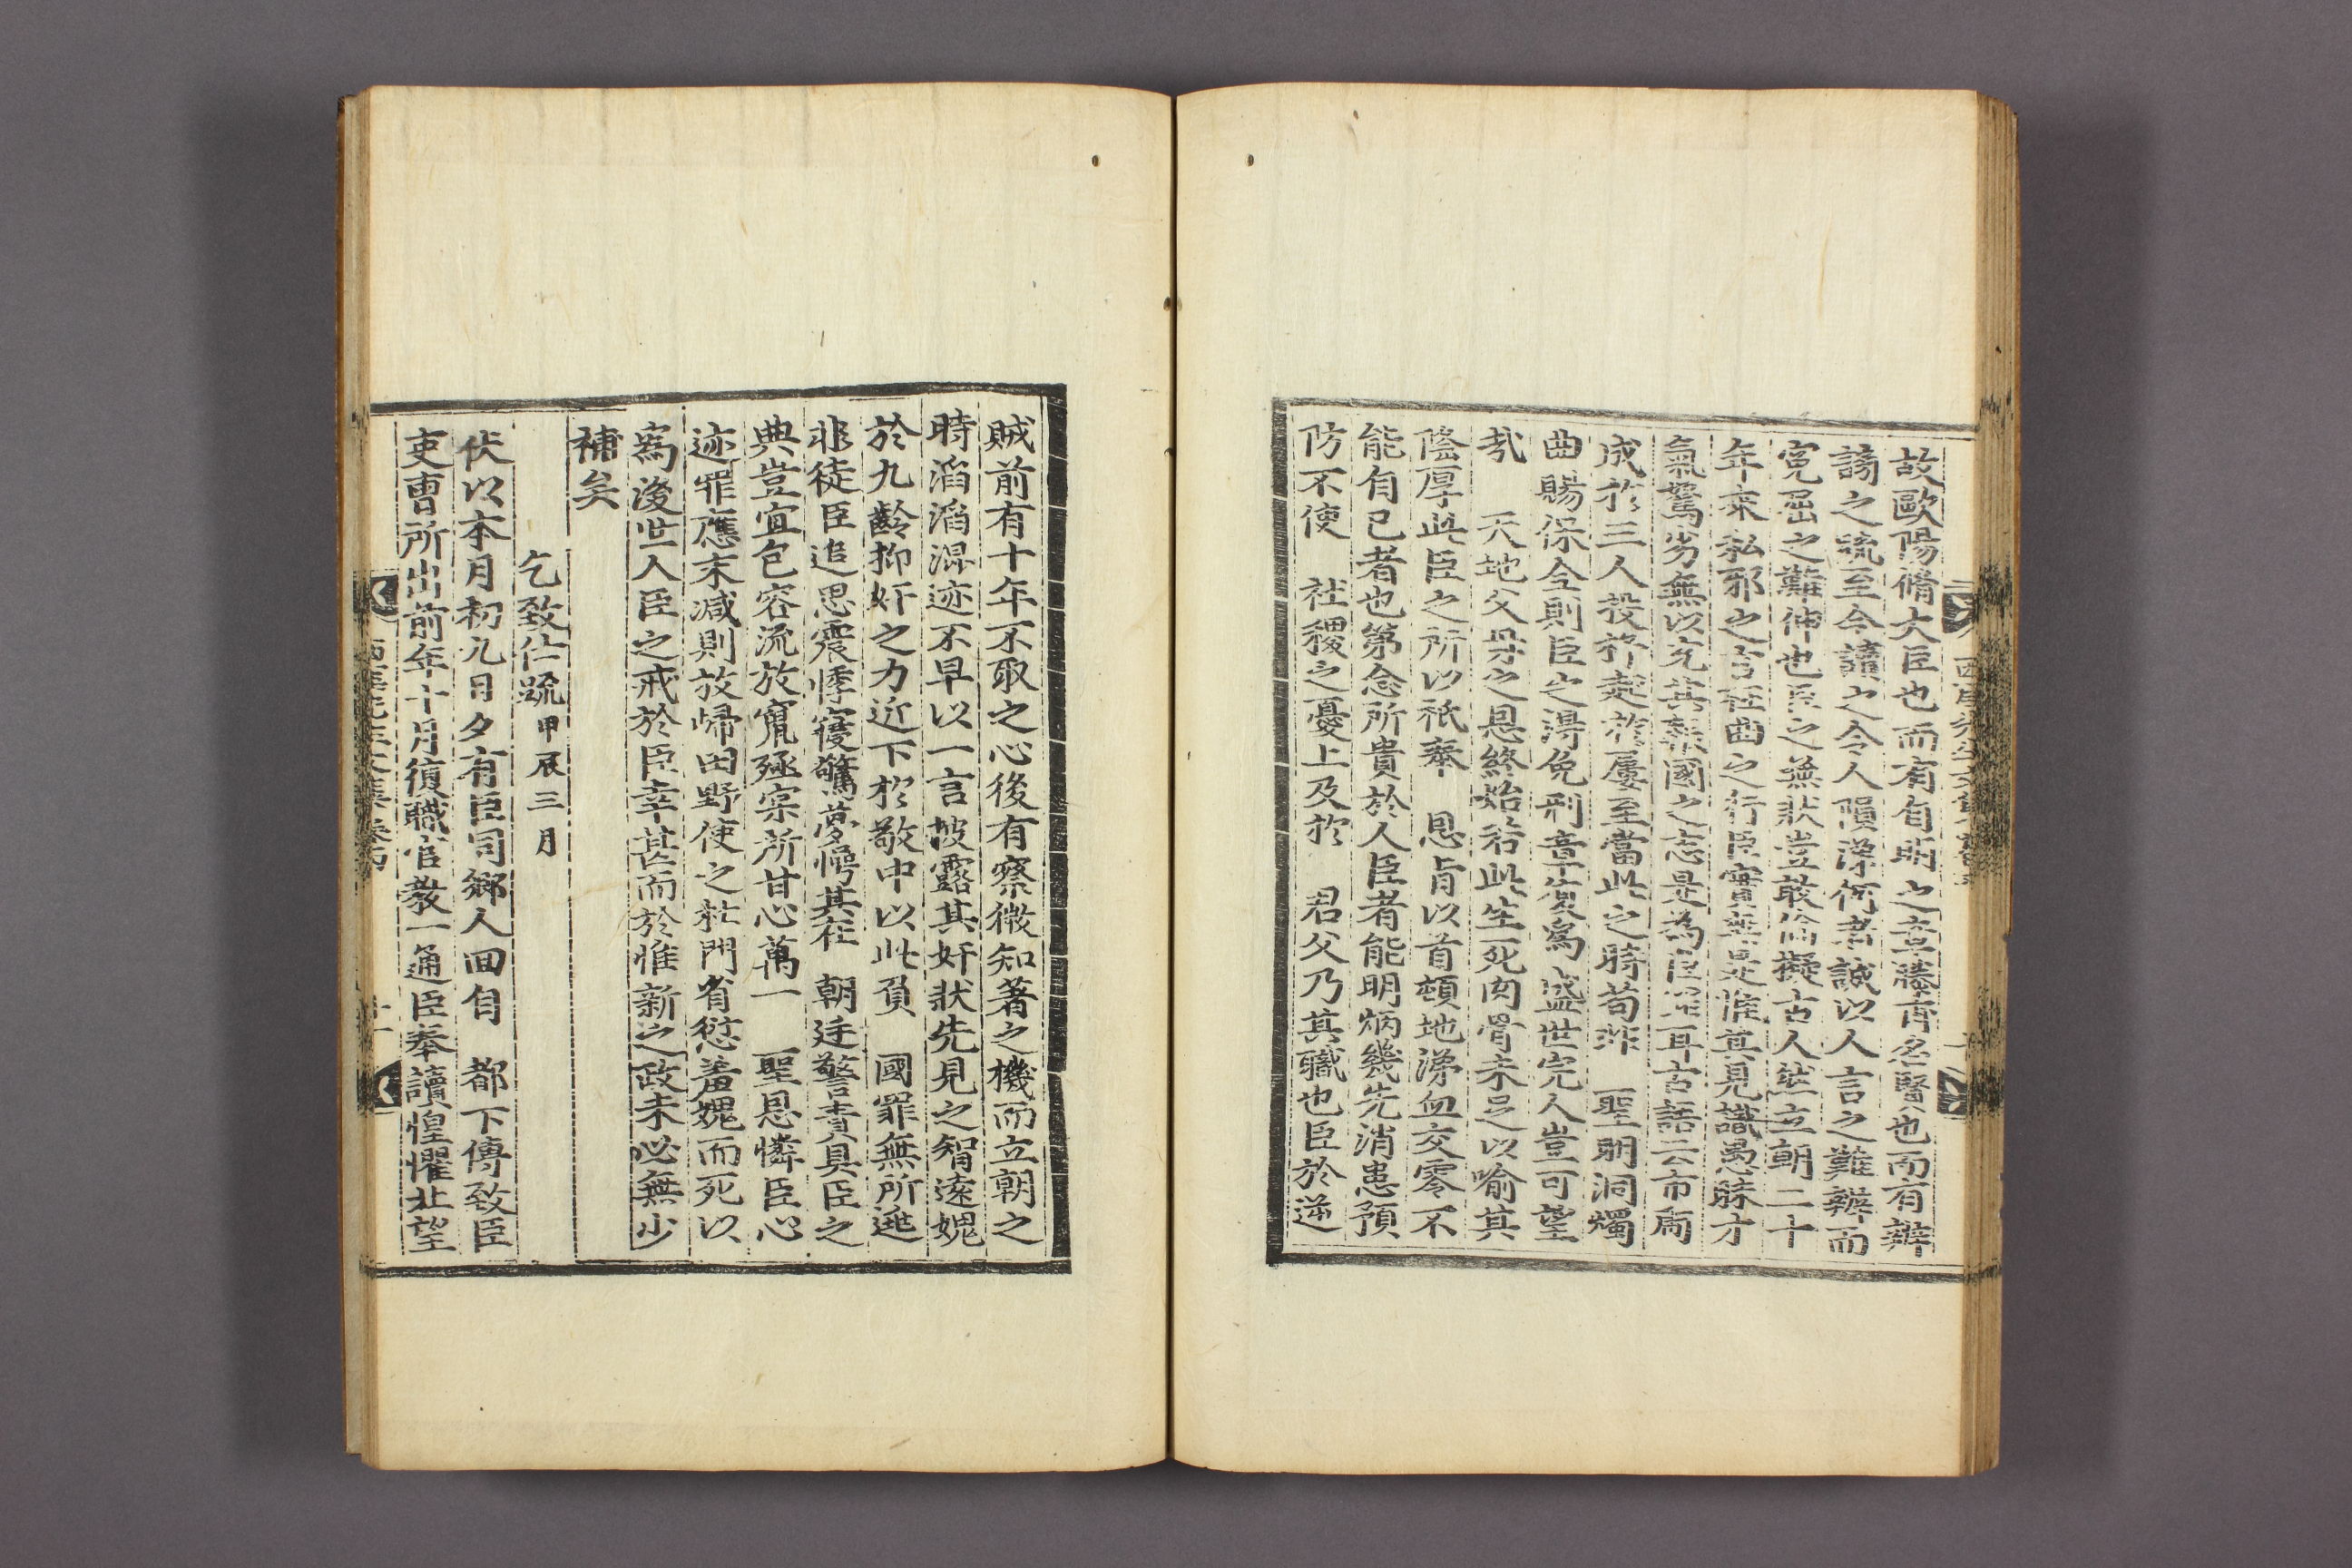 故歐陽脩大臣也而有自明之章滕甫名賢也而有辨
謗之疏至今讀之令人隕涕何者誠以人言之難辨而
冤屈之難伸也臣之無狀豈敢倫擬古人然立朝二十
年來私邪之言枉曲之行臣實無是惟其見識愚昧才
氣駑劣無以充其報國之志是為臣罪耳古語云市虎
成於三人投杼起於屢至當此之時苟非 聖明洞燭
曲賜保全則臣之得免刑章復爲盛世完人豈可望
哉 天地父母之恩終始若此生死肉骨未足以喻其
隆厚此臣之所以祇奉 恩旨以首頓地涕血交零不
能自已者也第念所貴於人臣者能明炳幾先消患預
防不使 社稷之憂上及於 君父乃其職也臣於逆
賊前有十年不取之心後有察微知著之機而立朝之
時滔滔混迹不早以一言披露其奸狀先見之智遠媿
於九齡抑奸之力近下於敬中以此負 國罪無所逃
非徒臣追思震悸寤驚夢愕其在 朝廷警責具臣之
典豈宜包容流放竄殛寔所甘心萬一 聖恩憐臣心
迹罪應末減則放歸田野使之杜門省愆羞媿而死以
爲後世人臣之戒於臣幸甚而於惟新之政未必無少
補矣
乞致仕疏 甲辰三月
伏以本月初九日夕有臣同鄉人回自 都下傳致臣
吏曹所出前年十月復職官敎一通臣奉讀惶懼北望